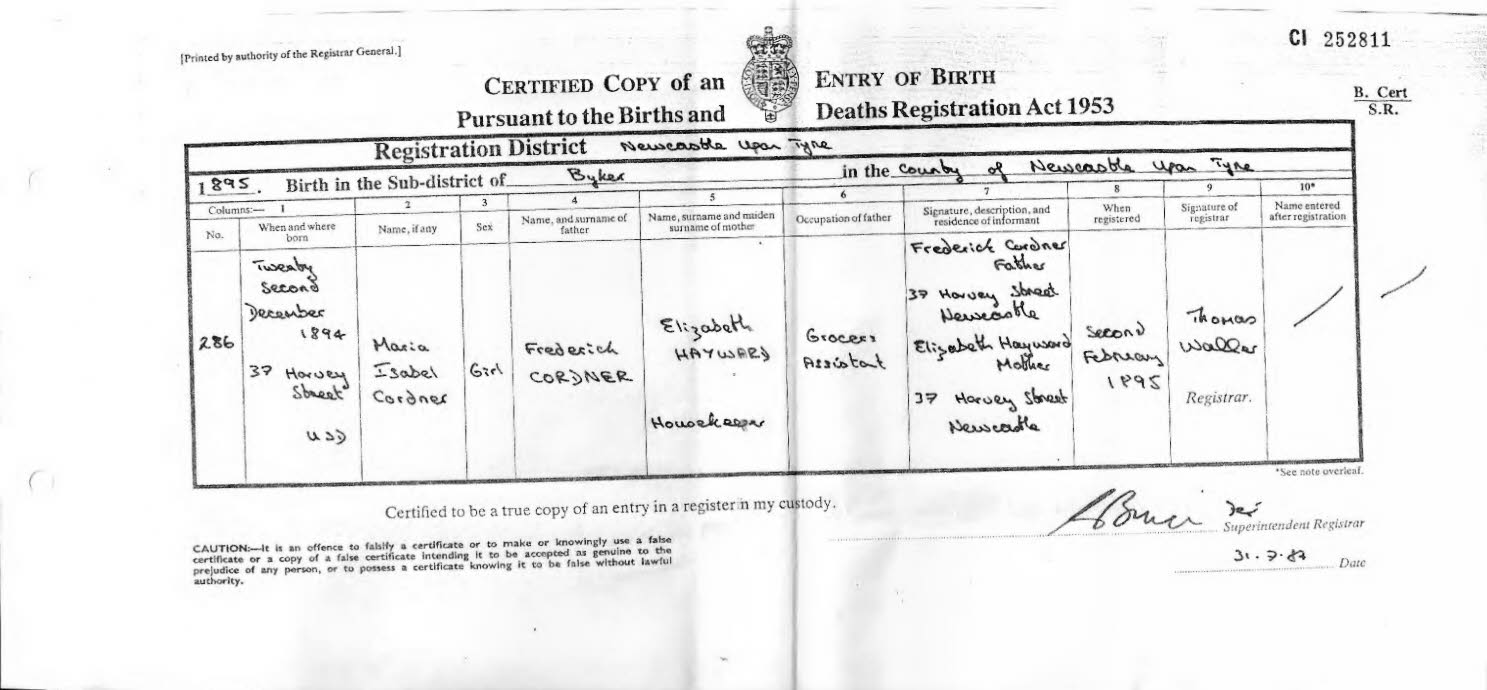 [Printed by authority of the Registrar General.]
CI 252811
CERTIFIED COPY of an ENTRY OF BIRTH
Pursuant to the Births and Deaths Registration Act 1953
B. Cert
S.R.
Registration District Newcastle Upon Tyne
1895. Birth in the Sub-district of Byker in the County of Newcastle Upon Tyne
Columns:— 1 2 3 4 5 6 7 8 9 10*
No.
When and where
born
Name, if any
Sex
Name, and surname of
father
Name, surname and maiden
surname of mother
Occupation of father
Signature, description, and
residence of informant
When
registered
Signature of
registrar
Name entered
after registration
286
Twenty
Second
December
1894
37 Harvey
Street
USD
Maria
Isabel
Cordner
Girl
Frederick
CORDNER
Elizabeth
HAYWARD
Housekeeper
Grocers
Assistant
Frederick Cordner
Father
37 Harvey Street
Newcastle
Elizabeth Hayward
Mother
37 Harvey Street
Newcastle
Second
February
1895
Thomas
Waller
Registrar.
*See note overleaf.
Certified to be a true copy of an entry in a register in my custody.
Superintendent Registrar
Date
CAUTION:—It is an offence to falsify a certificate or to make or knowingly use a false
certificate or a copy of a false certificate intending it to be accepted as genuine to the
prejudice of any person, or to possess a certificate knowing it to be false without lawful
authority.